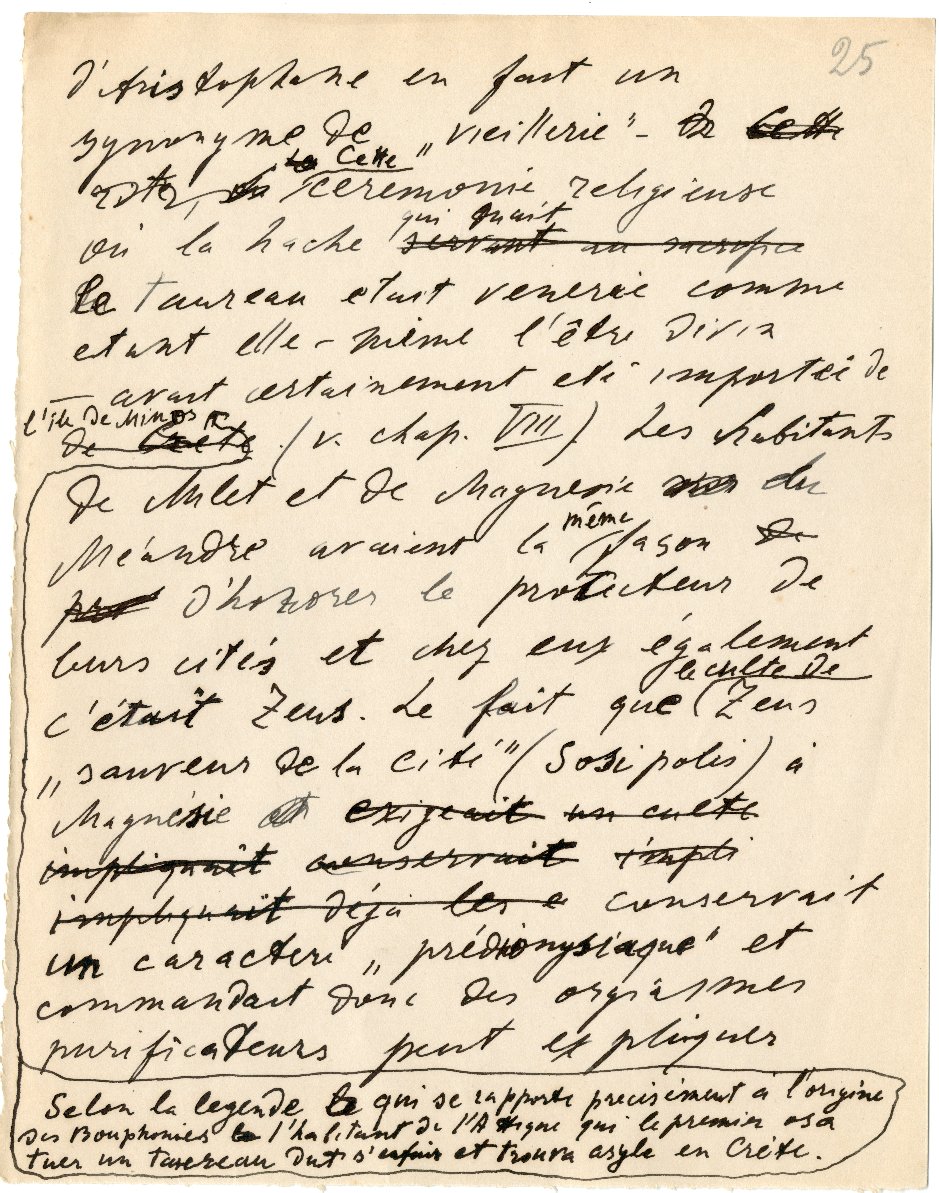 25
d'Aristophane en fait un
synonyme de „vieillerie" - De cette
La Cette
cérémonie religieuse
qui tuait
où la hache servant au sacrifice
le taureau était venerée comme
etant elle-même l'être divin
— avait certainement eté importée de
l'île de Minos
de Crète (v. chap. VIII). Les habitants
de Milet et de Magnesie du
même
Méandre avaient la façon de
d'honorer le protecteur de
leurs cités et chez eux également
le culte de
c'était Zeus. Le fait que Zeus
„sauveur de la cité" (Sosipolis) à
Magnésie et exigeait un culte
impliquait conservait impli
impliquait déjà les e conservait
un caractere „prédionysiaque" et
commandait donc des orgiasmes
purificateurs peut expliquer
Selon la legende le qui se rapporte precisément à l'origine
des Bouphonies le l'habitant de l'Attique qui le premier osa
tuer un taureau dut s'enfuir et trouva asyle en Crète.